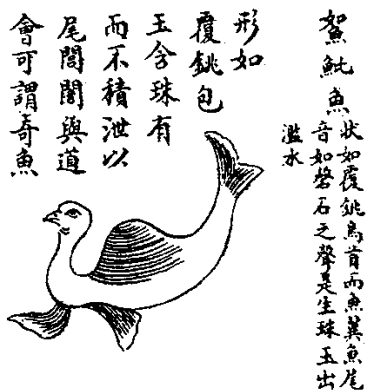 䰷魮魚
狀如覆銚鳥首而魚翼魚尾
音如磬石之聲是生珠玉出
濫水
形如
覆銚包
玉含珠有
而不積泄以
尾閭闇與道
會可謂奇魚